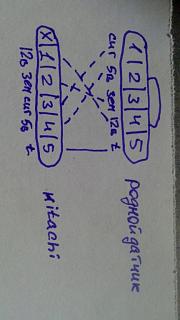 родной датчик
1 2 3 4 5
сиг 5в зем 12в t
X 1 2 3 4 5
12в зем сиг 5в t
Hitachi